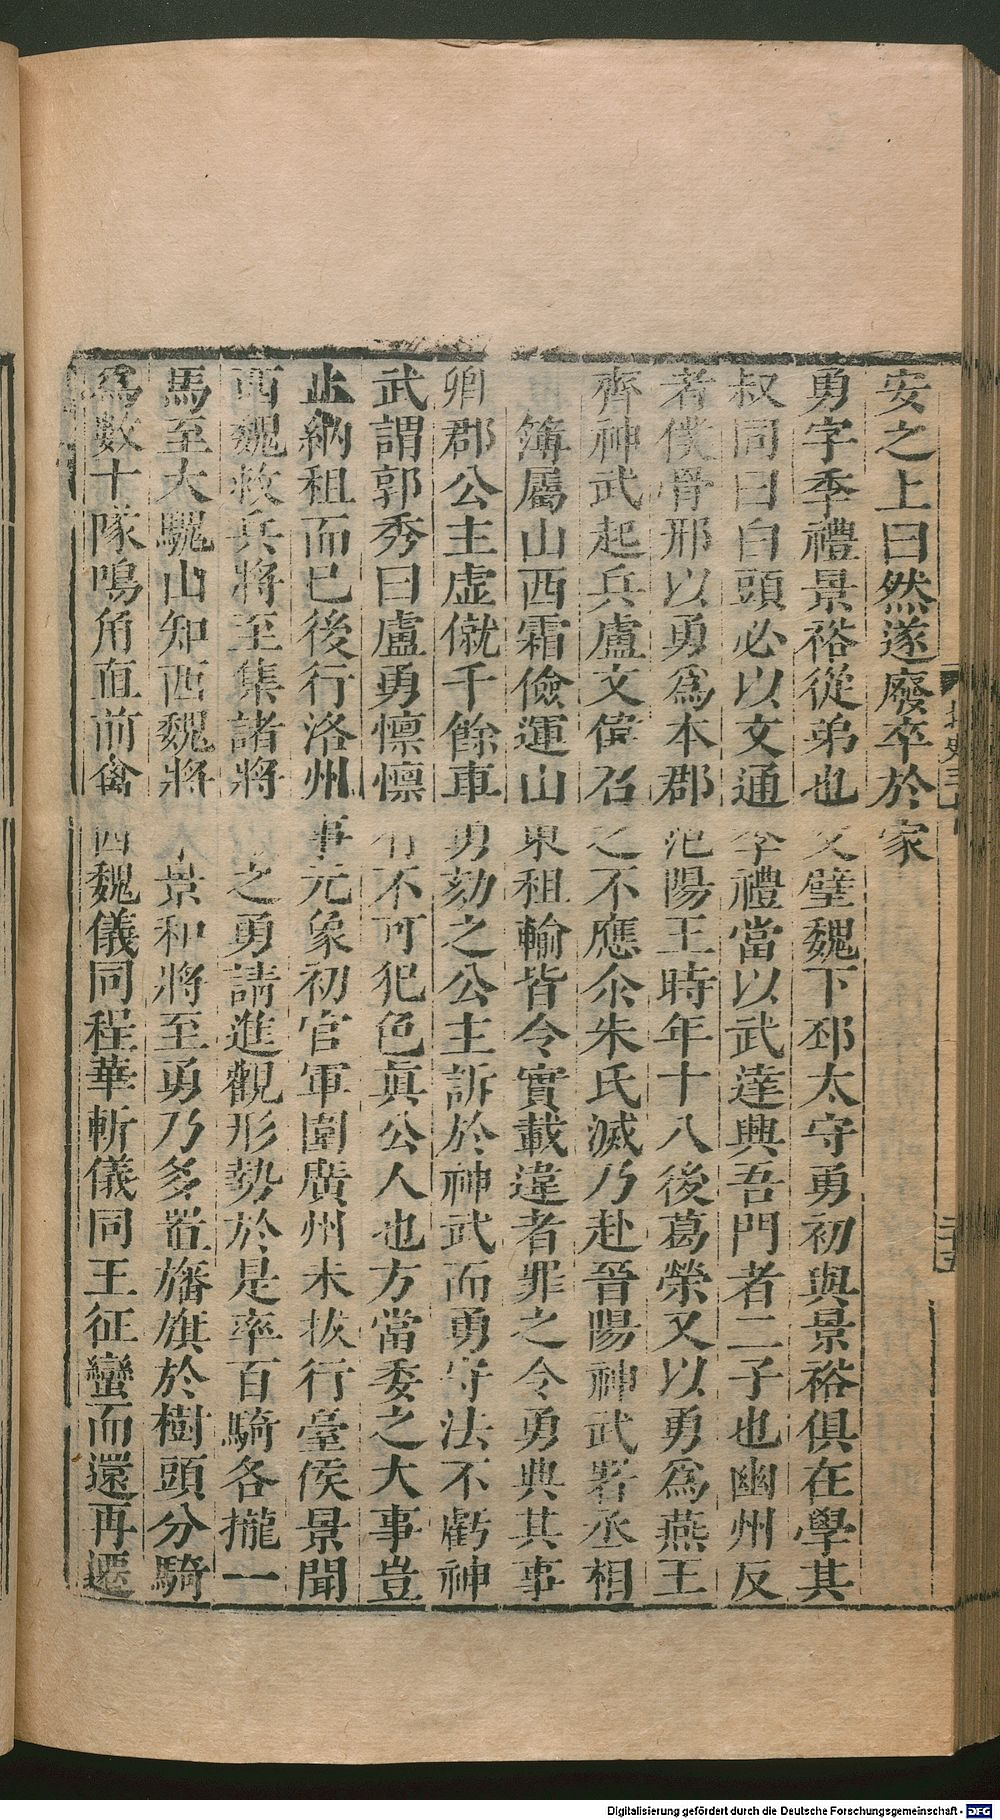 安之上曰然遂廢卒於家
勇字季禮景裕從弟也父璧魏下邳太守勇初與景裕俱在學其
叔同曰白頭必以文通季禮當以武達興吾門者二子也幽州反
者僕骨邢以勇爲本郡范陽王時年十八後葛榮又以勇爲燕王
齊神武起兵盧文偉召之不應尒朱氏滅乃赴晉陽神武署丞相
簿屬山西霜儉運山東租輸皆令實載違者罪之令勇典其事
卿郡公主虛僦千餘車勇劾之公主訴於神武而勇守法不虧神
武謂郭秀曰盧勇懍懍有不可犯色眞公人也方當委之大事豈
止納租而已後行洛州事元象初官軍圍廣州未拔行臺侯景聞
西魏救兵將至集諸將之勇請進觀形勢於是率百騎各攏一
馬至大騩山知西魏將景和將至勇乃多置旛旗於樹頭分騎
爲數十隊鳴角直前禽西魏儀同程華斬儀同王征蠻而還再遷
二十五
Digitalisierung gefördert durch die Deutsche Forschungsgemeinschaft - DFG